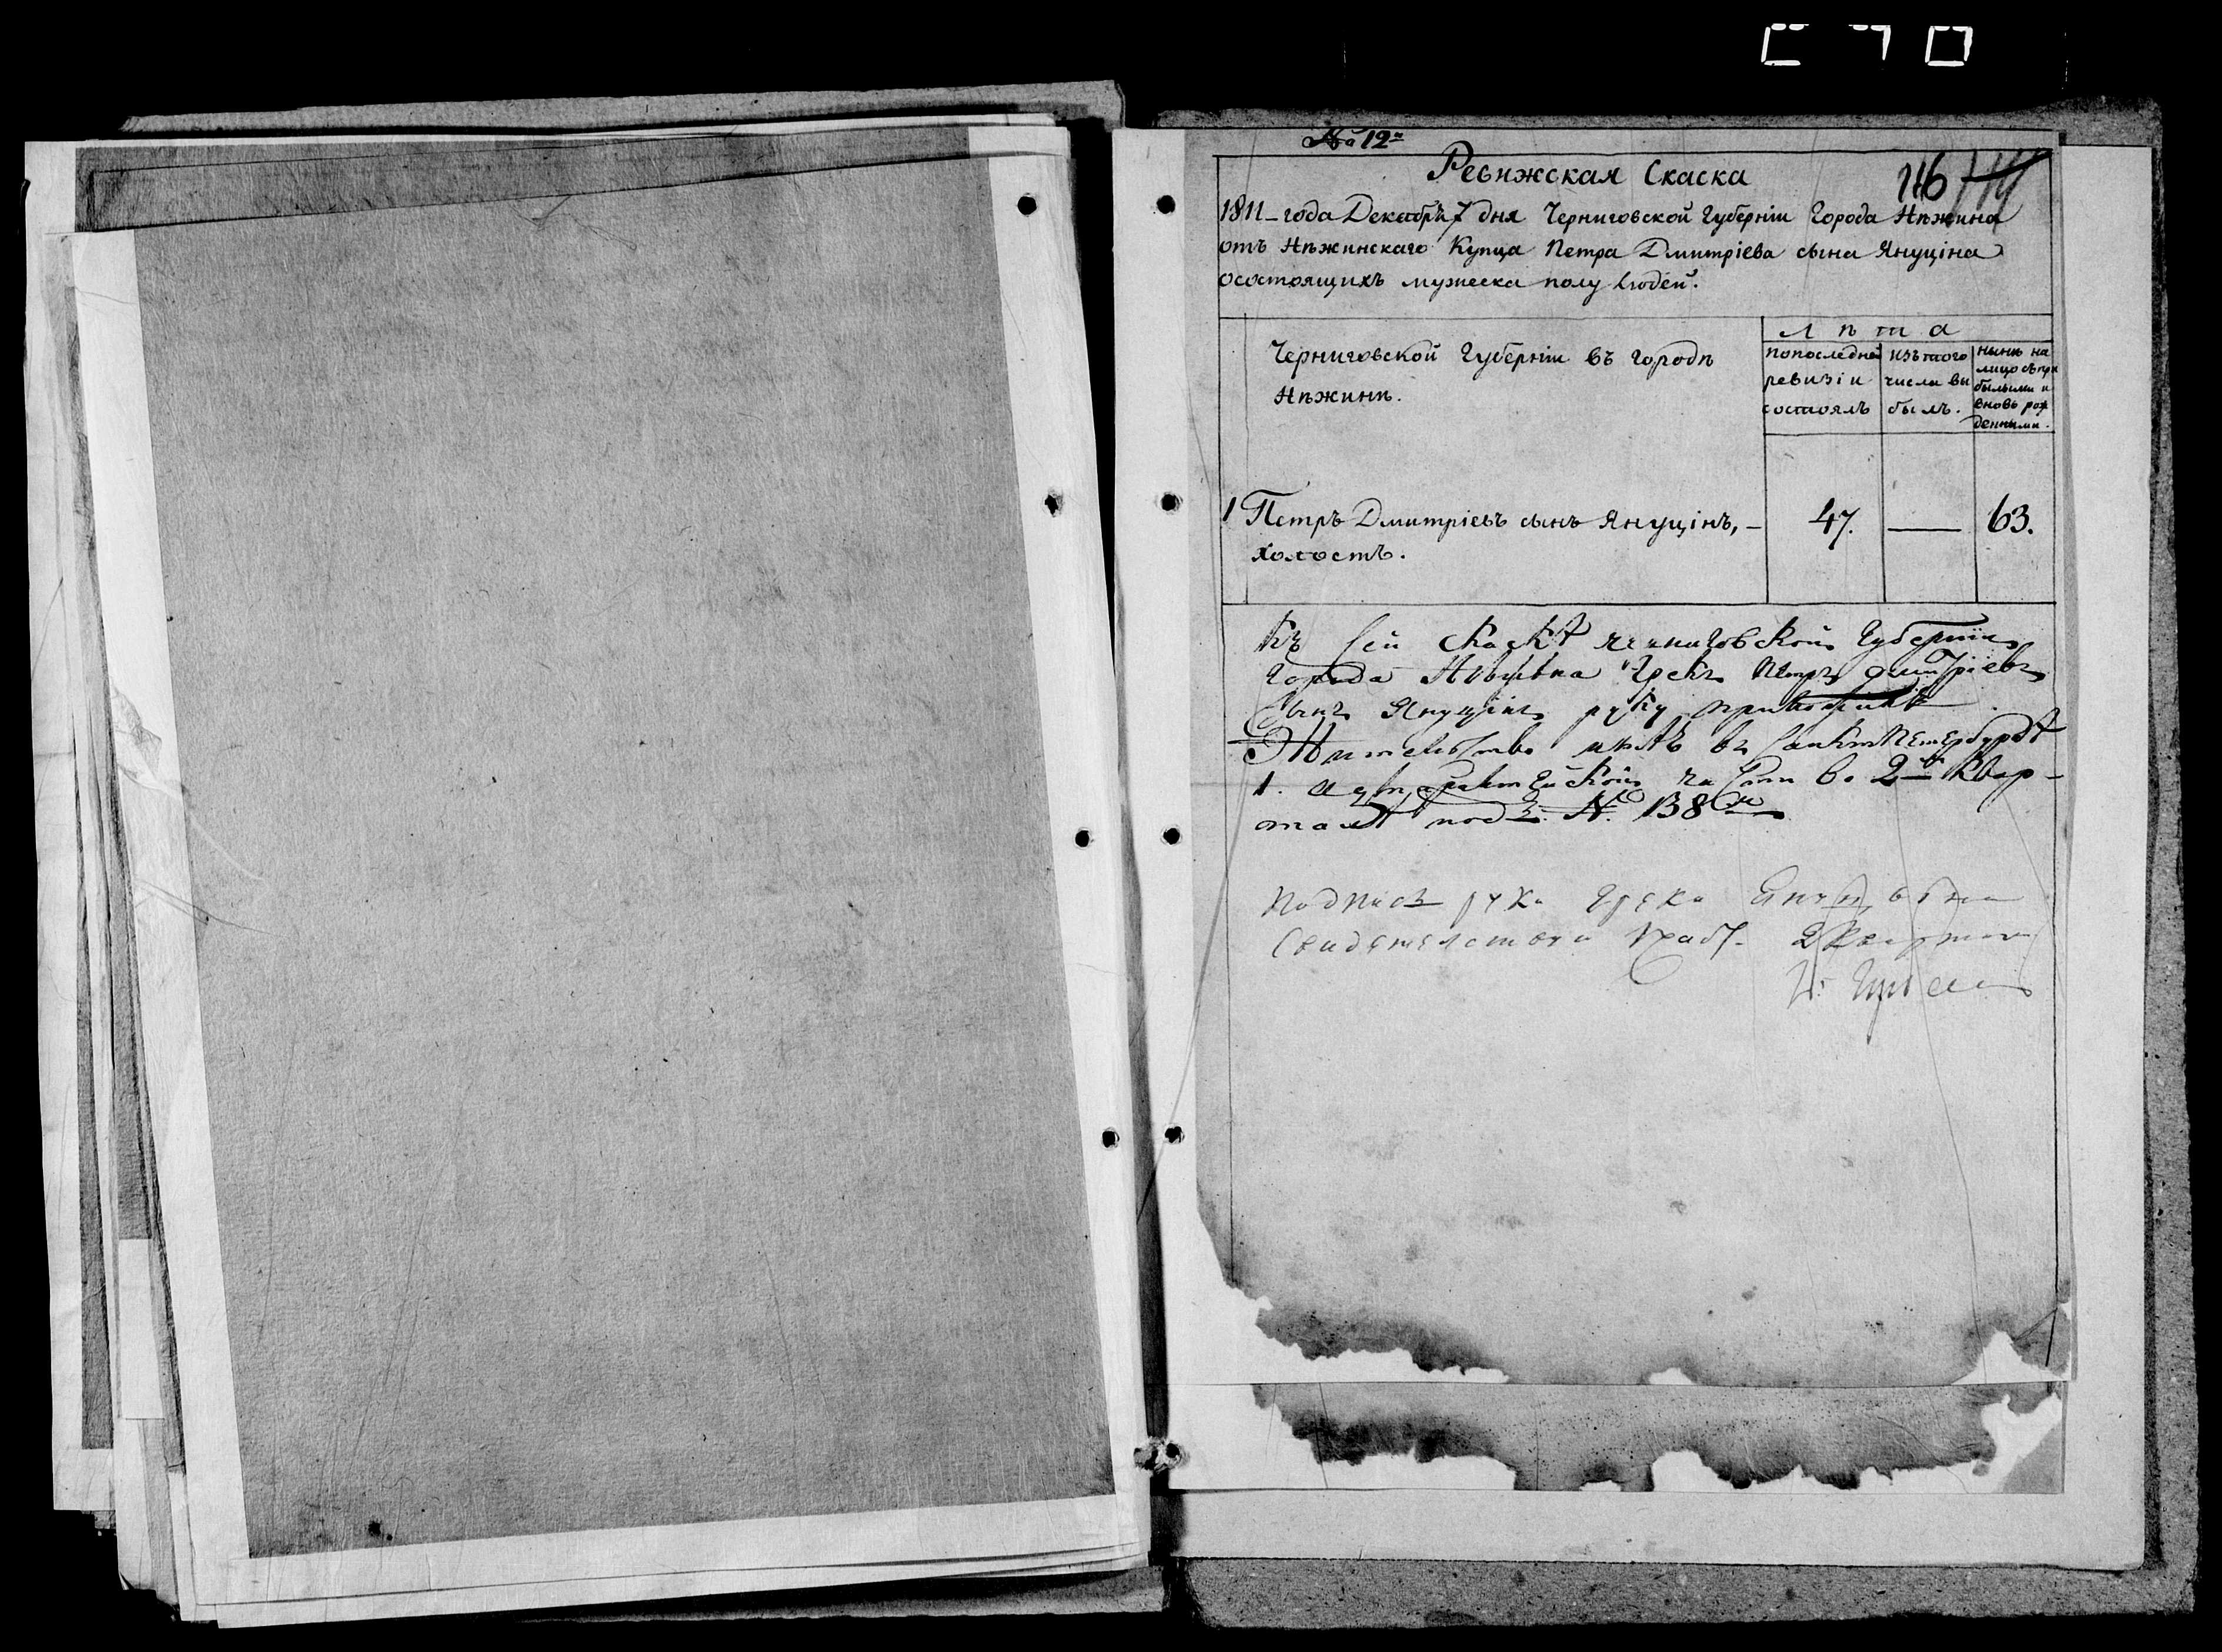 № 12й
Ревижская Скаска
116
1811-года Декабря 7 дня Черниговской Губерніи Города Нѣжина
отъ Нѣжинскаго Купца Петра Дмитріева сына Януціна
осостоящихъ мужеска полу людей.
Лѣта
Черниговской Губерніи въ городѣ
Нѣжинѣ.
попоследней ревизіи состоялъ
изъ того числа выбылъ.
нынѣ на лицо съ прибылыми и вновь рожденными.
1 Петръ Дмитріевъ сынъ Януцінъ, — 47. — 63.
холостъ.
Къ сей скаскѣ черниговской Губерніи
города Нѣжина Грекъ Петръ дмитріевъ
Сынъ Януцінъ руку приложилъ
Жительство имѣю въ Санктпетербургѣ
1. адмиралтейской части во 2й квар-
талѣ подъ №. 138м
подпись рука Грека
Свидетелствую 2 квартала